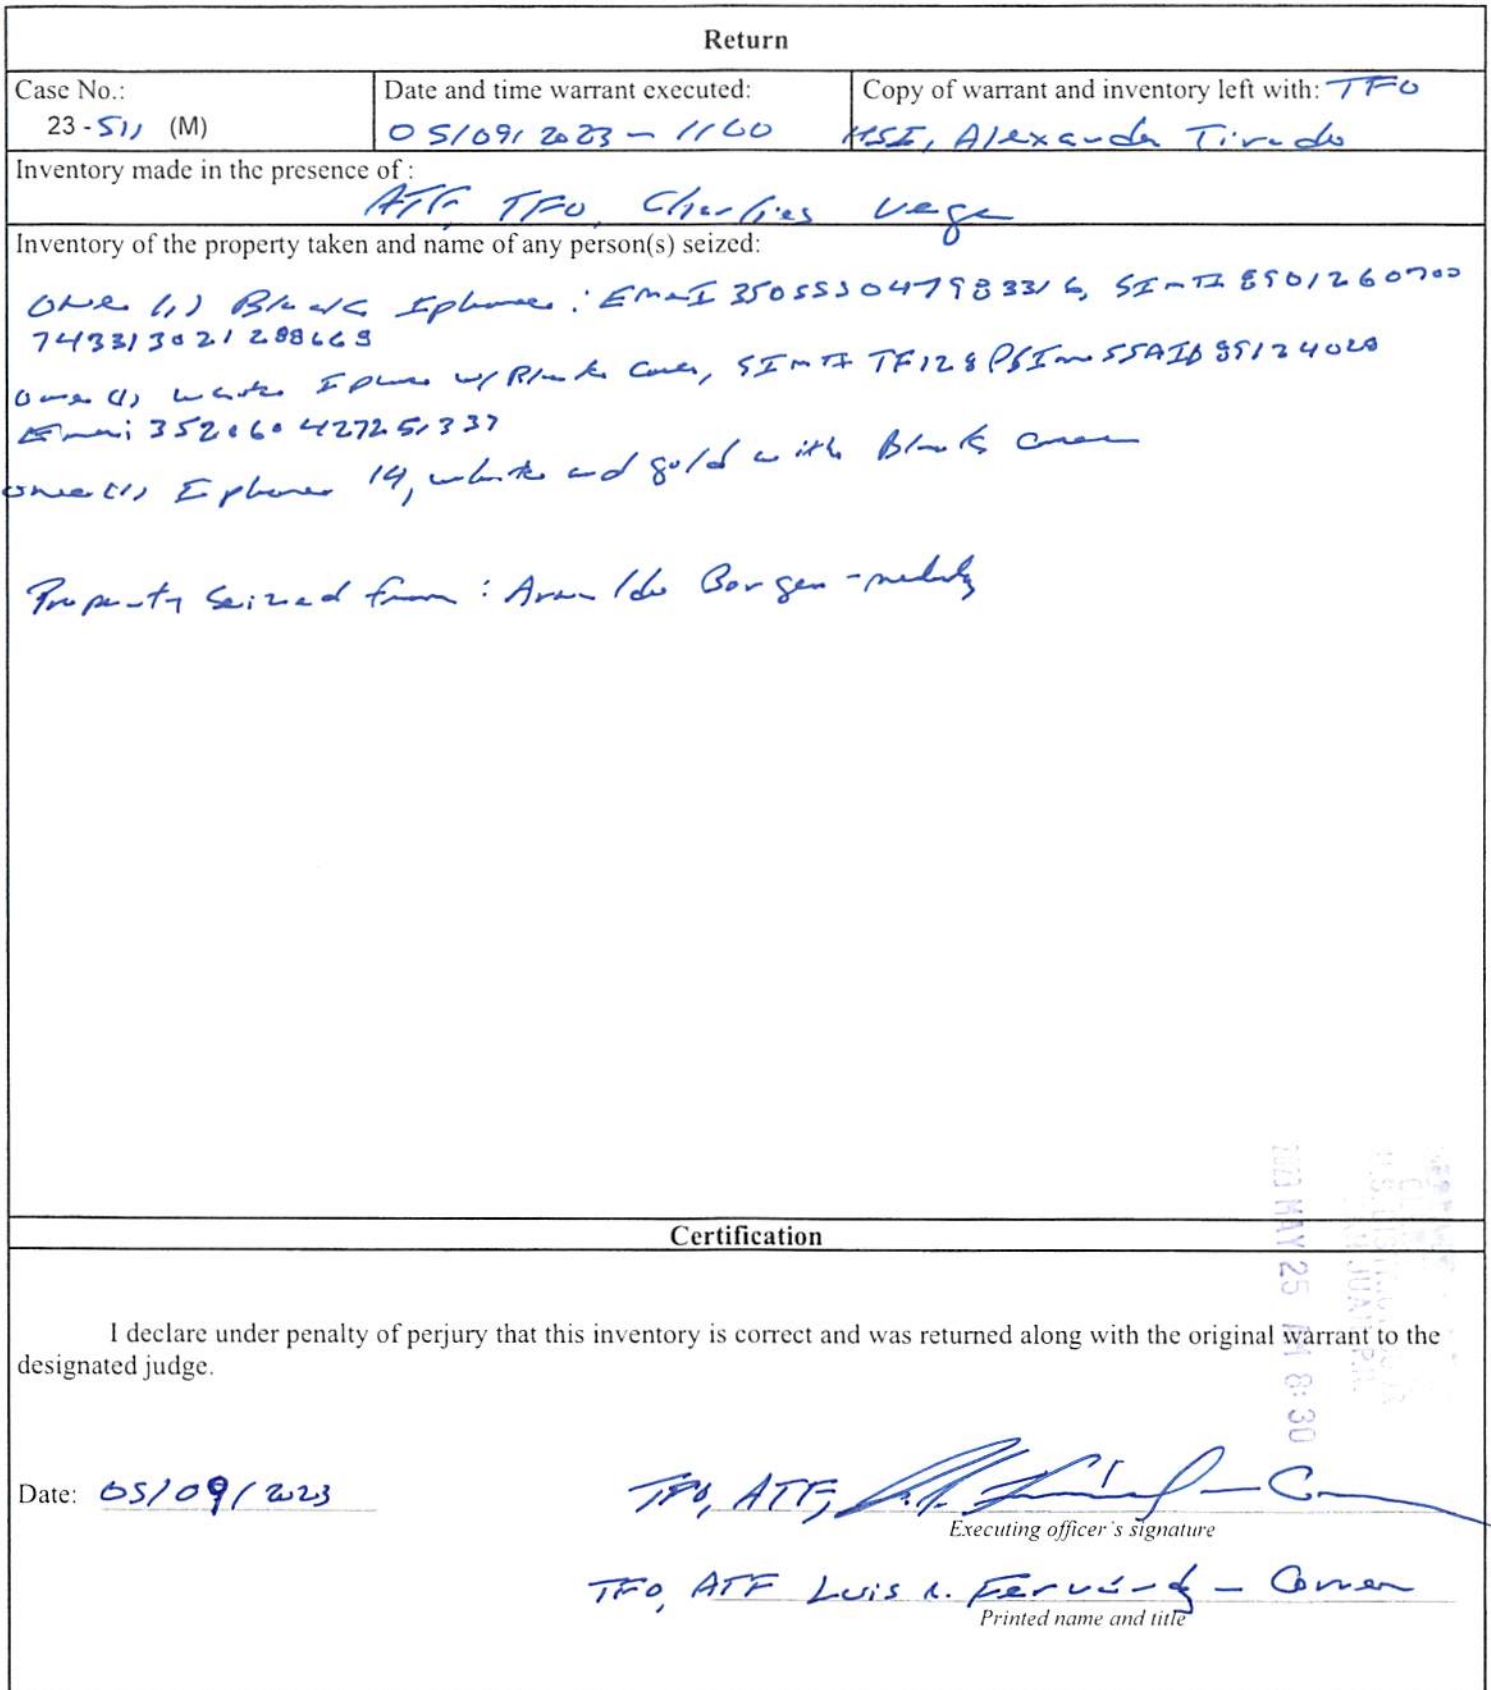 Return
Case No.:
23-511 (M)
Date and time warrant executed:
05/09/2023 - 1100
Copy of warrant and inventory left with: TFO
HSI, Alexander Tirado
Inventory made in the presence of :
ATF, TFO, Charlies Vega
Inventory of the property taken and name of any person(s) seized:
One (1) Black Iphone : EMEI 350553047983316, SIM# 8901260700
7433130212
One (1) white Iphone w/ Black Cover, SIM# TF128PSIM
Emei 352060427251337
One (1) Iphone 14, white and gold with Black cover
Property Seized from : Arnaldo
Certification
I declare under penalty of perjury that this inventory is correct and was returned along with the original warrant to the
designated judge.
2023 MAY 25 AM 8:30
Date: 05/09/2023
TFO, ATF,
Executing officer's signature
TFO, ATF Luis
Printed name and title